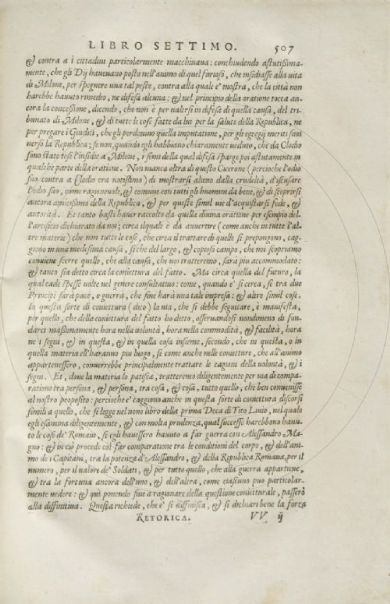 LIBRO SETTIMO. 507
& contra a i cittadini particolarmente macchinaua: conchiudendo astutissima-
mente, che gli Dij haueuano posto nell'animo di quel furioso, che insidiasse alla vita
di Milone, per spegnere una tal peste, contra alla quale e' mostra, che la città non
harebbe hauuto rimedio, ne difesa alcuna: & nel principio della oratione tocca an-
cora la concessione, dicendo, che non è per ualersi in difesa di questa causa, del tri-
bunato di Milone, & di tutte le cose fatte da lui per la salute della Republica, ne
per pregare i Giudici, che gli perdonino quella imputatione, per gli egregij meriti suoi
uerso la Republica; se non, quando egli habbiano chiaramente ueduto, che da Clodio
sono state tese l'insidie a Milone, i semi della qual difesa sparge poi astutamente in
qualche parte della oratione. Non manca oltra di questo Cicerone
di mostrarsi alieno dalla crudeltà,
& comune con tutti gli huomini da bene, & di scoprirsi
ancora amicissimo della Republica, & per queste simil uie d'acquistarsi fede, &
autorità. Et tanto basti hauer raccolto da quella diuina oratione per esempio del-
l'artificio dichiarato da noi; circa il quale è da auuertire (come anchi in tutte l'al-
tre materie) che non tutte le cose, che circa il trattare di quelle si propongono, cag-
giono in una medesima causa, si che del largo, & copioso campo, che noi scopriamo
conuiene scerre quello, che alla causa, che noi tratteremo, sarà piu accommodato:
& tanto sia detto circa la coniettura del fatto. Ma circa quella del futuro, la
qual cade spesse uolte nel genere consultatiuo: come, quando e' si cerca, se tra due
Principi sarà pace, o guerra, che fine harà una tale impresa: & altre simil cose.
In questa sorte di coniettura (dico) la uia, che si debbe seguitare, è manifesta,
per quello, che delle conietture del fatto ho detto, osseruandosi nondimeno di fon-
darci massimamente hora nella uolontà, hora nella commodità, & facultà, hora
ne i segni, & in questa, & in quella cosa insieme, secondo che in questa, o in
quella materia ell'haranno piu luogo, si come anche nelle conietture, che all'animo
appartenessero, conuerrebbe principalmente trattare le cagioni della uolontà, & i
segni. Et, doue la materia lo patisca, tratteremo diligentemente per uia di compa-
ratione tra persona, & persona, tra cosa, & cosa, tutto quello, che ben conuenisse
al nostro proposito: percioche e' caggiono anche in questa sorte di coniettura discorsi
simili a quello, che si legge nel nono libro della prima Deca di Tito Liuio, nel quale
egli esamina diligentemente, & con molta prudenza, qual successo harebbono hauu-
to le cose de' Romani, se egli hauessero hauuto a far guerra con Alessandro Ma-
gno: & in ciò procede col far comparatione tra le conditioni del corpo, & dell'ani-
mo de i Capitani, tra la potenza d'Alessandro, & della Republica Romana, per il
numero, per il ualore de' Soldati, & per tutto quello, che alla guerra appartiene,
& tra la fortuna ancora dell'uno, & dell'altra, come ciascuno può particolar-
mente uedere: & qui ponendo fine a ragionare della questione conietturale, passerò
alla diffinitiua. Questa richiede, che e' si diffinisca, & si dichiari bene la forza
RETORICA. VV. ij